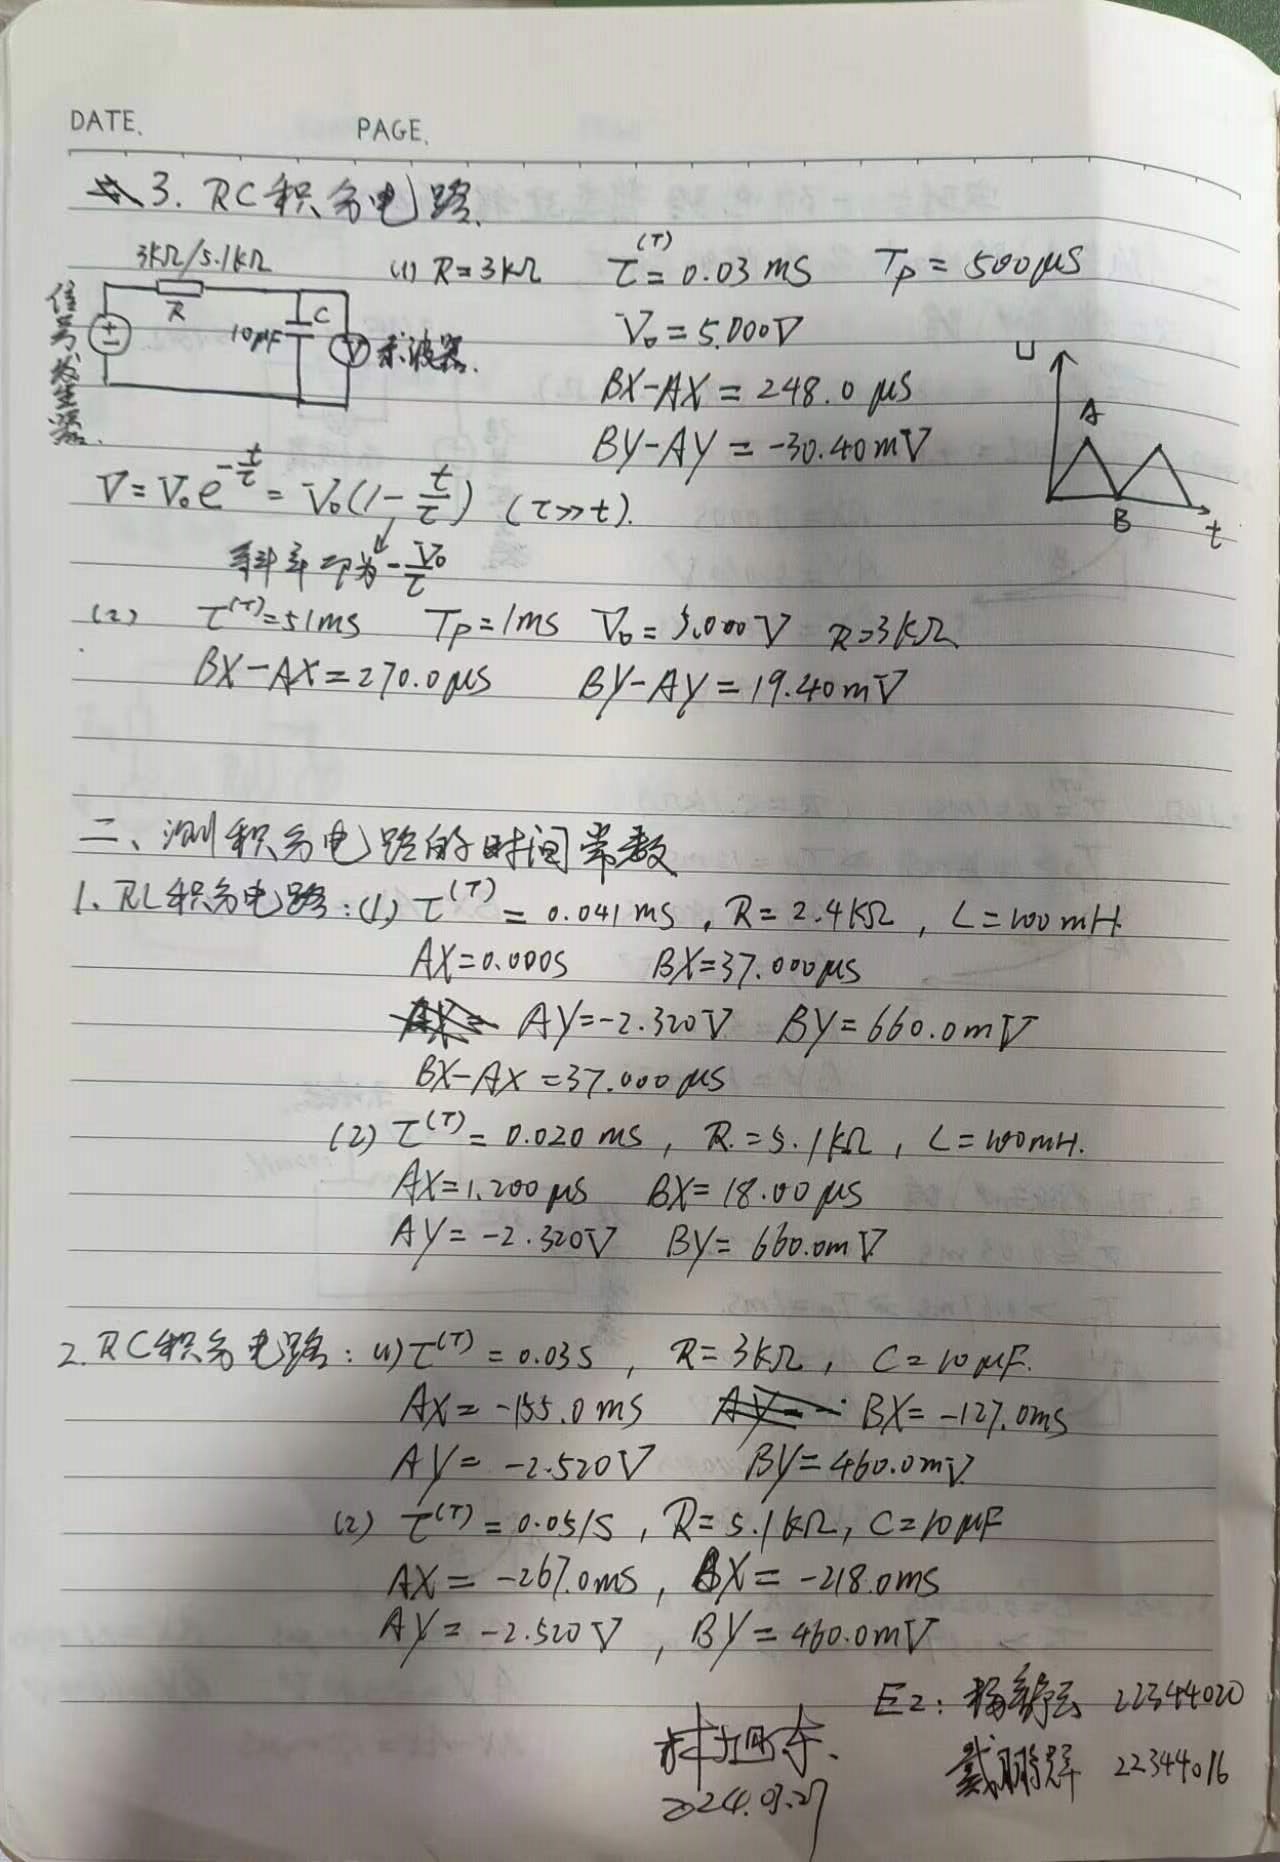 DATE. PAGE.
3. RC积分电路.
3kΩ/5.1kΩ
R
C
10μF
V
信号发生器.
示波器.
(1) R=3kΩ τ⁽ᵀ⁾=0.03ms Tp=500μs
V₀=5.000V
BX-AX=248.0μs
BY-AY=-30.40mV
U
A
B
t
V=V₀e^(-t/τ)=V₀(1-t/τ) (τ≫t).
斜率即为-V₀/τ
(2) τ⁽ᵀ⁾=51ms Tp=1ms V₀=5.000V R=3kΩ
BX-AX=270.0μs BY-AY=19.40mV
二、测积分电路的时间常数
1. RL积分电路:(1) τ⁽ᵀ⁾=0.041ms, R=2.4kΩ, L=100mH.
AX=0.000s BX=37.000μs
AY=-2.320V BY=660.0mV
BX-AX=37.000μs
(2) τ⁽ᵀ⁾=0.020ms, R=5.1kΩ, L=100mH.
AX=1.200μs BX=18.00μs
AY=-2.320V BY=660.0mV
2. RC积分电路:(1) τ⁽ᵀ⁾=0.03s, R=3kΩ, C=10μF.
AX=-155.0ms BX=-127.0ms
AY=-2.520V BY=460.0mV
(2) τ⁽ᵀ⁾=0.051s, R=5.1kΩ, C=10μF
AX=-267.0ms, BX=-218.0ms
AY=-2.520V, BY=460.0mV
E2: 22344020
戴鹏辉 22344016
2024.03.27